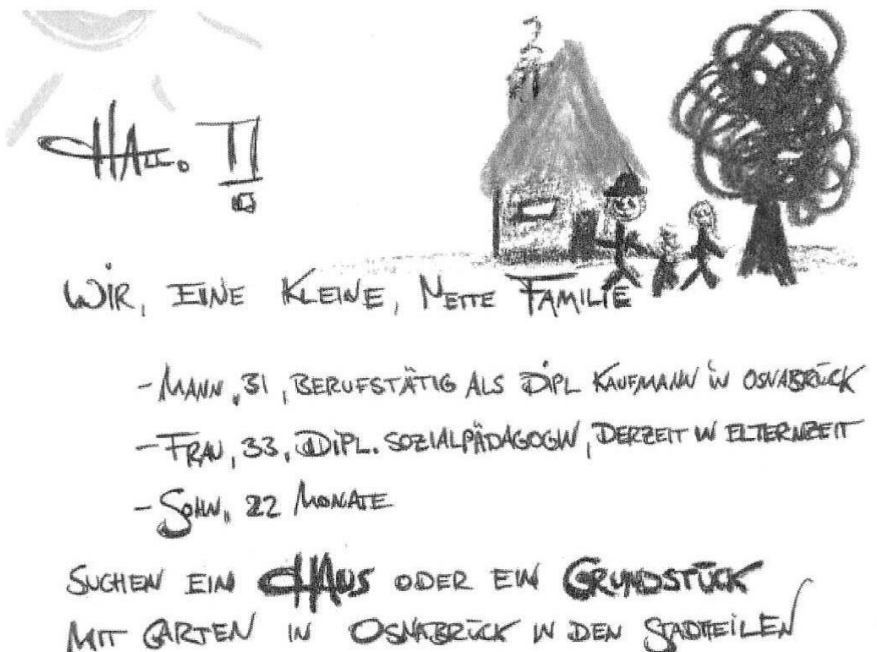 HALLO !!
WIR, EINE KLEINE, NETTE FAMILIE
- MANN, 31, BERUFSTÄTIG ALS DIPL KAUFMANN IN OSNABRÜCK
- FRAU, 33, DIPL. SOZIALPÄDAGOGIN, DERZEIT IN ELTERNZEIT
- SOHN, 22 MONATE
SUCHEN EIN HAUS ODER EIN GRUNDSTÜCK
MIT GARTEN IN OSNABRÜCK IN DEN STADTTEILEN